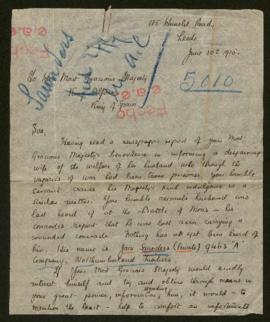 185 Hunslet Road,
Leeds
June 20th 1915.
To His Most Gracious Majesty
King of Spain
5010
Saunders
Sire,
Having read a newspaper report of your Most
Gracious Majesty's benevolence in informing a despairing
wife of the welfare of her husband who through the
vagaries of war had been taken prisoner, your humble
servant craves his Majesty's kind indulgence in a
similar matter. Your humble servant's husband was
last heard of at the Battle of Mons - his
comrades report that he was last seen carrying a
wounded comrade. Nothing has as yet been heard of
him. His name is (Private) 9463 "A"
Company, Northumberland Fusiliers
If Your Most Gracious Majesty would kindly
interest himself and try and obtain through means in
your great power, information, then, it would - to
mention the least - help to comfort an unfortunate